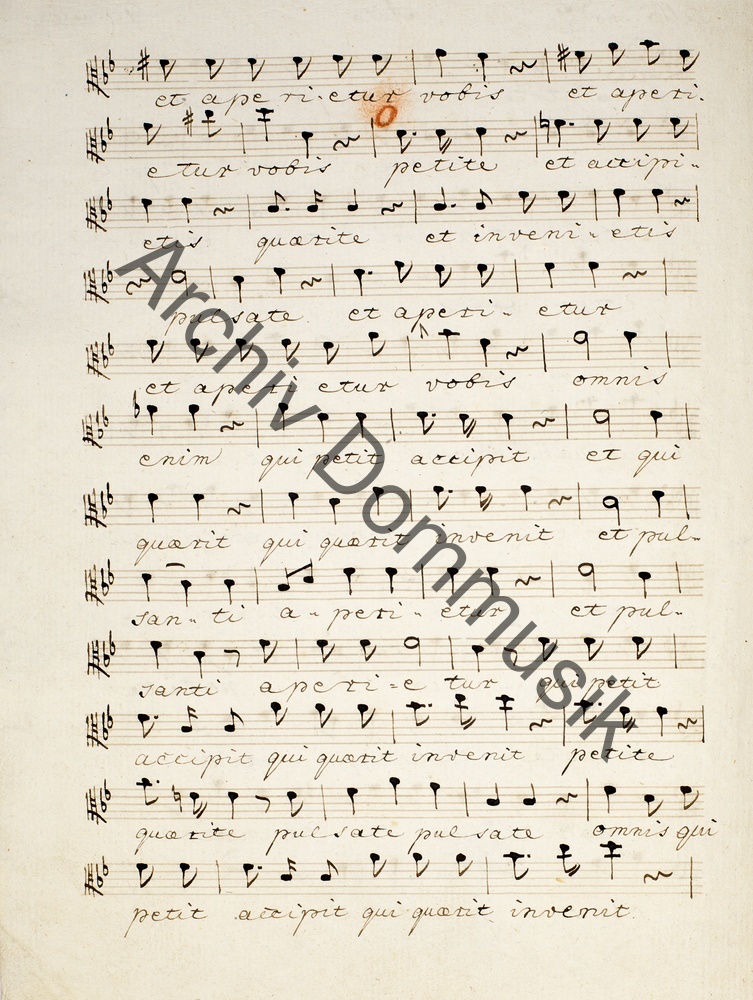 et aperi-etur vobis et aperi-
etur vobis petite et accipi-
etis quærite et inveni-etis
pulsate et aperi-etur
et aperi etur vobis omnis
enim qui petit accipit et qui
quærit qui quærit invenit et pul-
san-ti a-peri-etur et pul-
santi aperi-e tur qui petit
accipit qui quærit invenit petite
quærite pulsate pulsate omnis qui
petit accipit qui quærit invenit
Archiv Dommusik